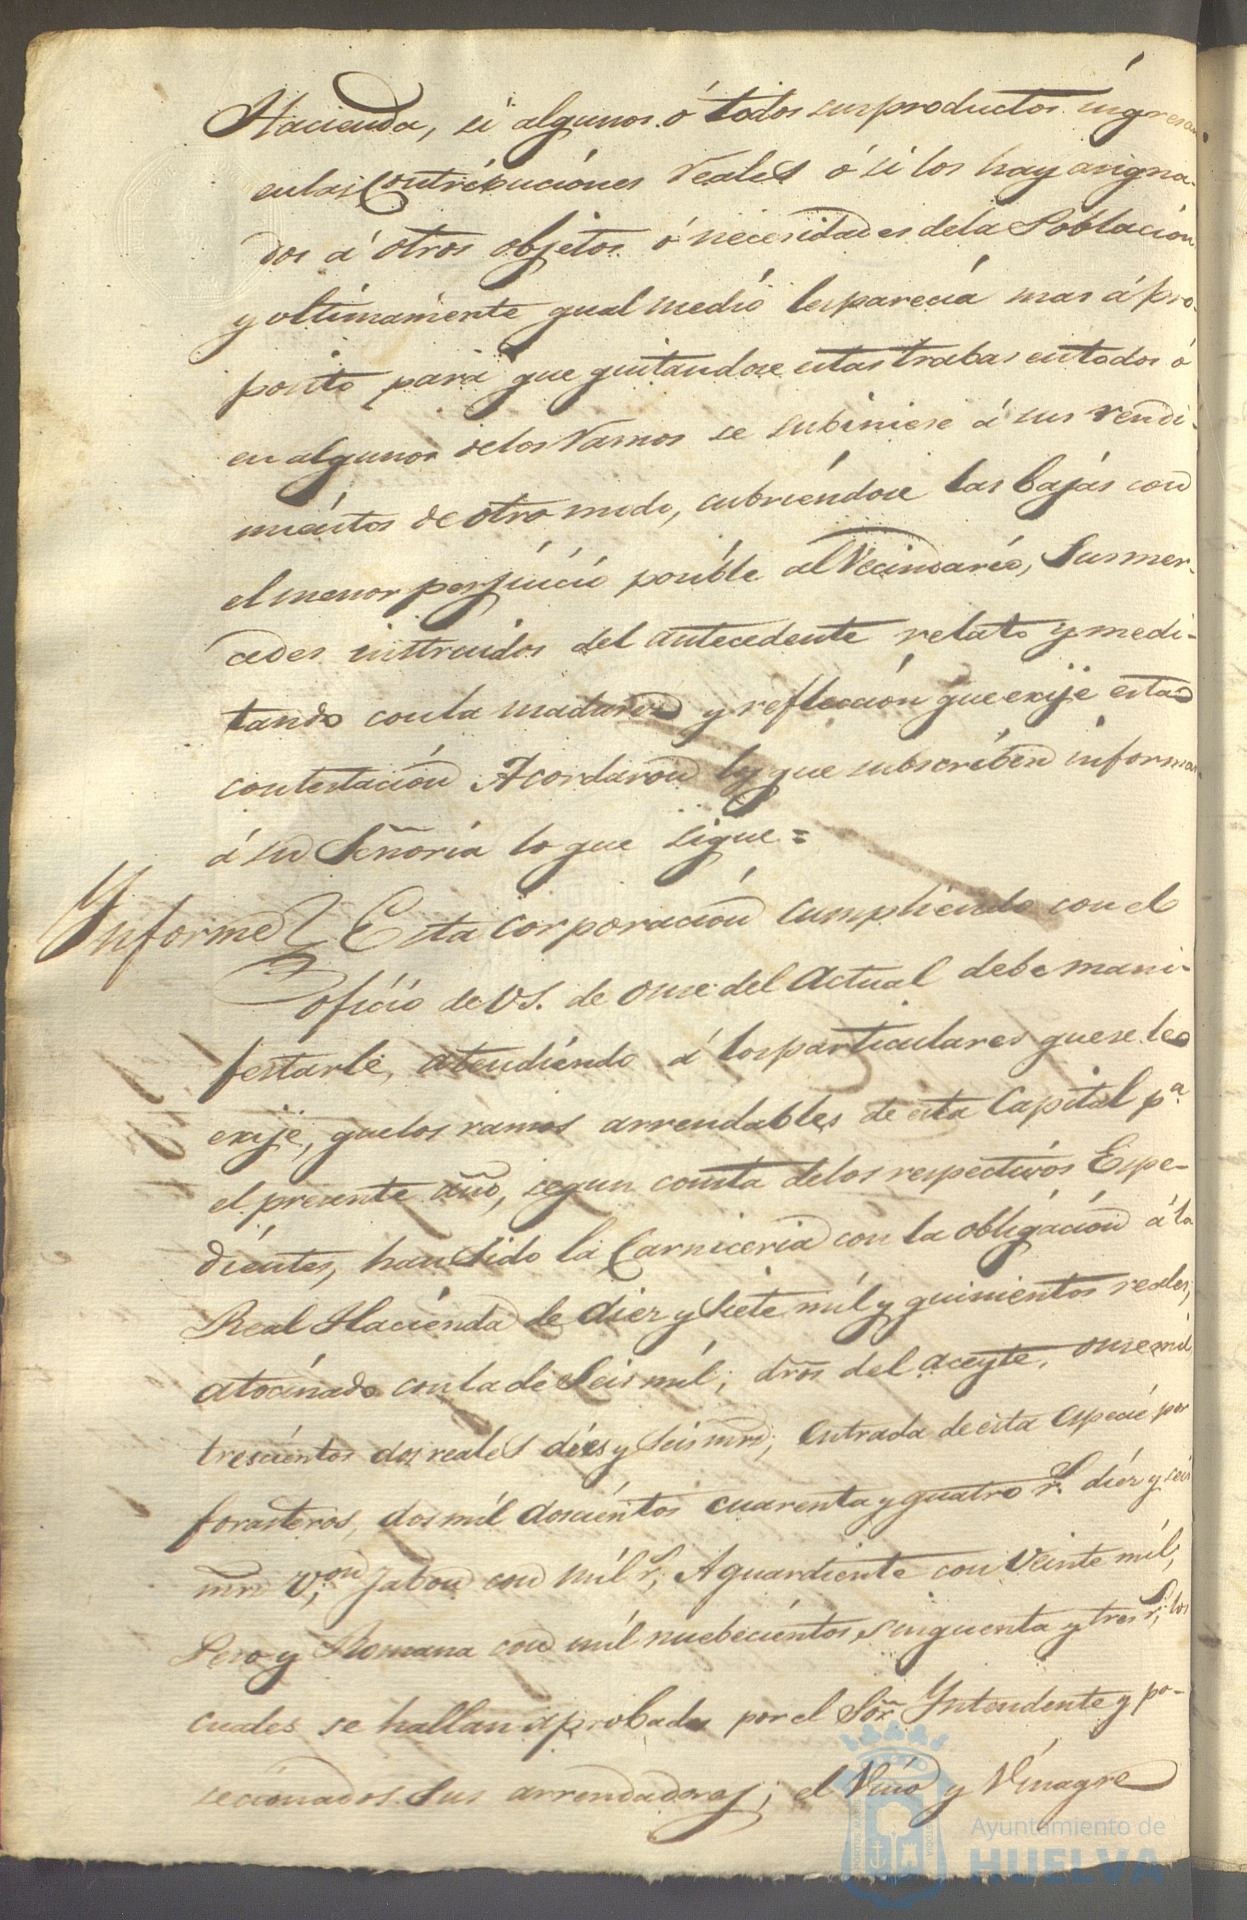 Hacienda, si algunos ó todos susproductos ingresan
enlas Contribuciónes reales ó si los hay asigna-
dos á otros objetos ó necesidades dela Poblacion
y ultimamente qual medio lesparecia mas á pro-
posito para que quitandose estas trabas en todos ó
en algunos delos ramos se subiniese á sus rendi-
mientos de otro modo, cubriendose las bajas con
el menor perjuicio posible al Vecindario, Susmer-
cedes instruidos del antecedente relato y medi-
tando conla madurez y reflección que exije esta
contestación Acordaron los que subscriben informar
á su Señoria lo que sigue=
Informe Esta corporación cumpliendo con el
oficio de VS. de onse del actual debe mani-
festarle, atendiendo á losparticulares quese le
exije, quelos ramos arrendables de esta Capital pª
el presente año, segun consta delos respectivos Espe-
dientes, han sido la Carniceria con la obligación á la
Real Hacienda de diez y siete mil y quinientos reales;
atocinado conla de Seis mil; dros del aceyte, onse mil
trescientos dos reales dies y seis mrs; entrada de esta especie por
forasteros, dos mil doscientos cuarenta y quatro r.s diez y seis
mrs V.on Jabon con mil r.s, Aguardiente con Veinte mil;
Peso y Romana con mil nuebecientos sinquenta y tres r.s, los
cuales se hallan aprobados por el Sor Yntendente y po-
secionados sus arrendadores; el Vino y Vinagre
Ayuntamiento de
HUELVA